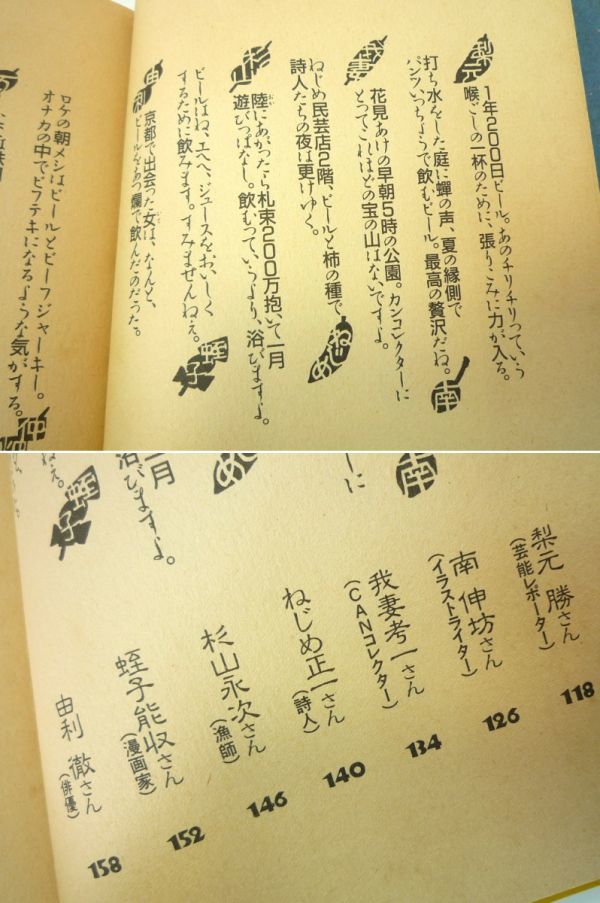 梨元
1年200日ビール。あのチリチリっていう
喉ごしの一杯のために、張りこみに力が入る。
打ち水をした庭に蟬の声、夏の縁側で
パンツいっちょうで飲むビール。最高の贅沢だね。
南
我妻
花見あけの早朝5時の公園。カンコレクターに
とってこれほどの宝の山はないですよ。
ねじめ民芸店2階、ビールと柿の種で
詩人たちの夜は更けゆく。
ねじめ
杉山
陸にあがったら札束200万抱いて一月
遊びっぱなし。飲むっていうより、浴びますよ。
ビールはね、エヘヘ、ジュースをおいしく
するために飲みます。すみませんねぇ。
蛭子
由利
京都で出会った女は、なんと、
ビールをあつ燗で飲んだのだった。
ロケの朝メシはビールとビーフジャーキー。
オナカの中でビフテキになるような気がする。
月
浴びますよ。
ねぇ。
蛭子
めじ
に
南
梨元 勝さん
(芸能レポーター)
118
南 伸坊さん
(イラストライター)
126
我妻考一さん
(CANコレクター)
134
ねじめ正一さん
(詩人)
140
杉山永次さん
(漁師)
146
蛭子能収さん
(漫画家)
152
由利 徹さん
(俳優)
158